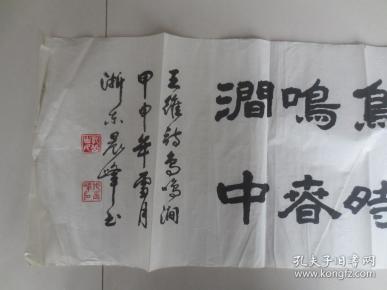 鳥時
鳴春
澗中
王維詩鳥鳴澗
甲申年雪月
浙东晨峰书
孔夫子旧书网